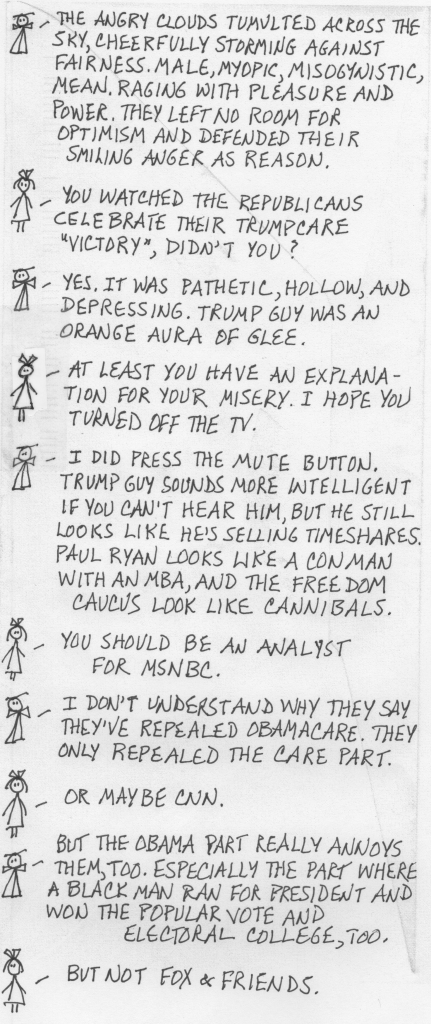 THE ANGRY CLOUDS TUMULTED ACROSS THE
SKY, CHEERFULLY STORMING AGAINST
FAIRNESS. MALE, MYOPIC, MISOGYNISTIC,
MEAN. RAGING WITH PLEASURE AND
POWER. THEY LEFT NO ROOM FOR
OPTIMISM AND DEFENDED THEIR
SMILING ANGER AS REASON.
YOU WATCHED THE REPUBLICANS
CELEBRATE THEIR TRUMPCARE
"VICTORY", DIDN'T YOU?
YES. IT WAS PATHETIC, HOLLOW, AND
DEPRESSING. TRUMP GUY WAS AN
ORANGE AURA OF GLEE.
AT LEAST YOU HAVE AN EXPLANA-
TION FOR YOUR MISERY. I HOPE YOU
TURNED OFF THE TV.
I DID PRESS THE MUTE BUTTON.
TRUMP GUY SOUNDS MORE INTELLIGENT
IF YOU CAN'T HEAR HIM, BUT HE STILL
LOOKS LIKE HE'S SELLING TIMESHARES.
PAUL RYAN LOOKS LIKE A CONMAN
WITH AN MBA, AND THE FREEDOM
CAUCUS LOOK LIKE CANNIBALS.
YOU SHOULD BE AN ANALYST
FOR MSNBC.
I DON'T UNDERSTAND WHY THEY SAY
THEY'VE REPEALED OBAMACARE. THEY
ONLY REPEALED THE CARE PART.
OR MAYBE CNN.
BUT THE OBAMA PART REALLY ANNOYS
THEM, TOO. ESPECIALLY THE PART WHERE
A BLACK MAN RAN FOR PRESIDENT AND
WON THE POPULAR VOTE AND
ELECTORAL COLLEGE, TOO.
BUT NOT FOX & FRIENDS.